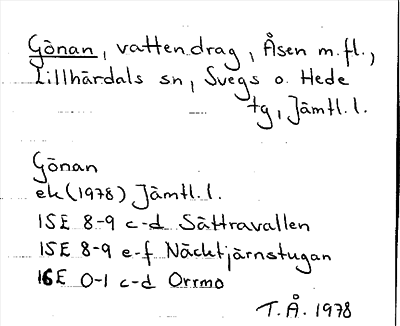 Gönan, vattendrag, Åsen m.fl.,
Lillhärdals sn, Svegs o. Hede
tg, Jämtl. l.
Gönan
ek (1978) Jämtl. l.
15E 8-9 c-d Sättravallen
15E 8-9 e-f Näcktjärnstugan
16E 0-1 c-d Orrmo
T.Å. 1978